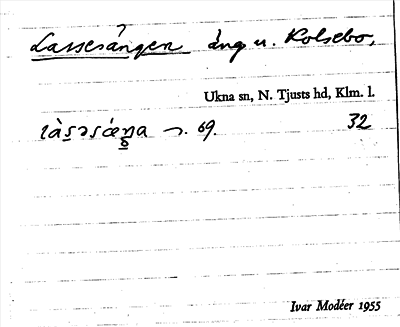 Lassesängen äng u. Kolsebo,
Ukna sn, N. Tjusts hd, Klm. l.
69. 32
Ivar Modéer 1955